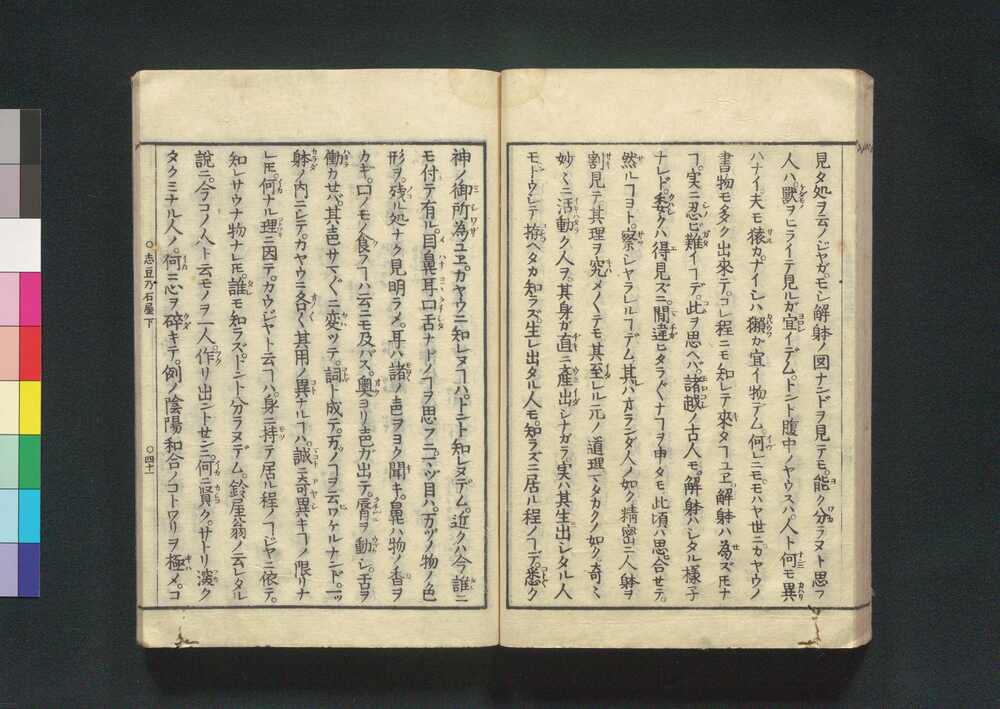 見タ処ヲ云ノジヤガ。モシ解躰ノ図ナンドヲ見テモ。能ク分ラヌト思フ
人ハ。獸ヲヒライテ見ルガ宜イデム。ドント腹中ノヤウスハ。人ト何モ異
ハナイ夫モ猿カ。ナイシハ獺カ宜イ物デム。何レニモモハヤ世ニカヤウノ
書物モ多ク出来テ。コレ程ニモノ知レテ来タヿユヱ。解躰ハ為ズモナ
ヿ。実ニ忍ビ難イヿデ。此ヲ思ヘバ。諸越ノ古人モ。解躰ハシタル様子
ナレド。委クハ得見ズニ。聞違ヒタラくナヿヲ申タモ此頃ハ思合セテ。
然ルヿヨト。察シヤラレルヿデム。其ハオランダ人ノ如ク精密ニ人躰ヲ
割見テ其理ヲ究メくテモ其至レル元ノ道理ハタカクノ如ク奇ミ
妙ミニ活動ク人ヲ。其身ガ直ニ産出シナガラ。実ハ其生出シタル人
モ。ドウシテ拵ヘタカ知ラズ。生レ出タル人モ。知ラズニ居ル程ノヿデ。悉ク
神ノ御所為ユヱ。カヤウニ知レヌヿハ。ドント知レヌデム。近クハ今誰ニ
モ付テ有ル。目鼻耳口舌ナドノヿヲ思フニ。マヅ目ハ。万ヅノ物ノ色
形ヲ。残ル処ナク見明ラメ。耳ハ諸ノ声ヲヨク聞キ。鼻ハ物ノ香ヲ
カギ。口ノモノ食フヿハ云ニモ及バズ。奥ヨリ声ガ出テ。唇ヲ動シ。舌ヲ
働カせバ。其声サマぐニ変ツテ。詞ト成テ。万ノヿヲ云ワケルナンド。一ツ
躰ノ内ニシテ。カヤウニ各く其用ノ異ナルヿハ。誠ニ奇異キヿノ限リナ
レ𪜈。何ナル理ニ因テ。カウジヤト云ヿハ。身ニ持テ居ル程ノヿジヤニ依テ。
知レサウナ物ナレ𪜈。誰モ知ラズ。ドント分ラヌデム。鈴屋翁ノ云レタル
説ニ。今コノ人ト云モノヲ一人。作リ出ントせンニ。何ニ賢ク。サトリ深ク
タクミナル人ノ。何ニ心ヲ碎キテ。例ノ陰陽和合ノコトワリヲ極メ。コ
○志豆乃石屋下
○四十一